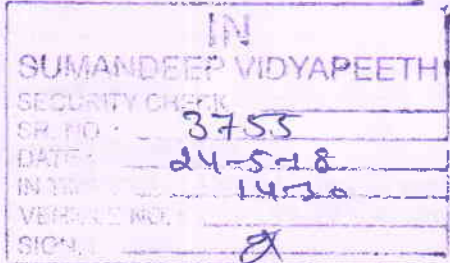 IN
SUMANDEEP VIDYAPEETH
SECURITY CHECK
SR. NO. 3755
DATE: 24-5-18
IN TIME 14-30
VEHICLE NO.
SIGN.